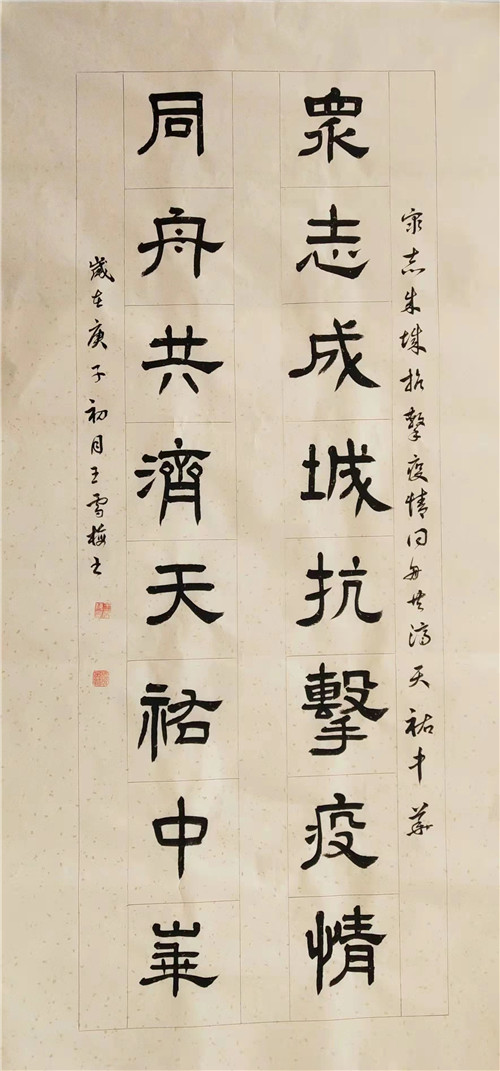 众志成城抗擊疫情同舟共济天祐中華
眾志成城抗擊疫情
同舟共濟天祐中華
歲在庚子初月王雪梅书